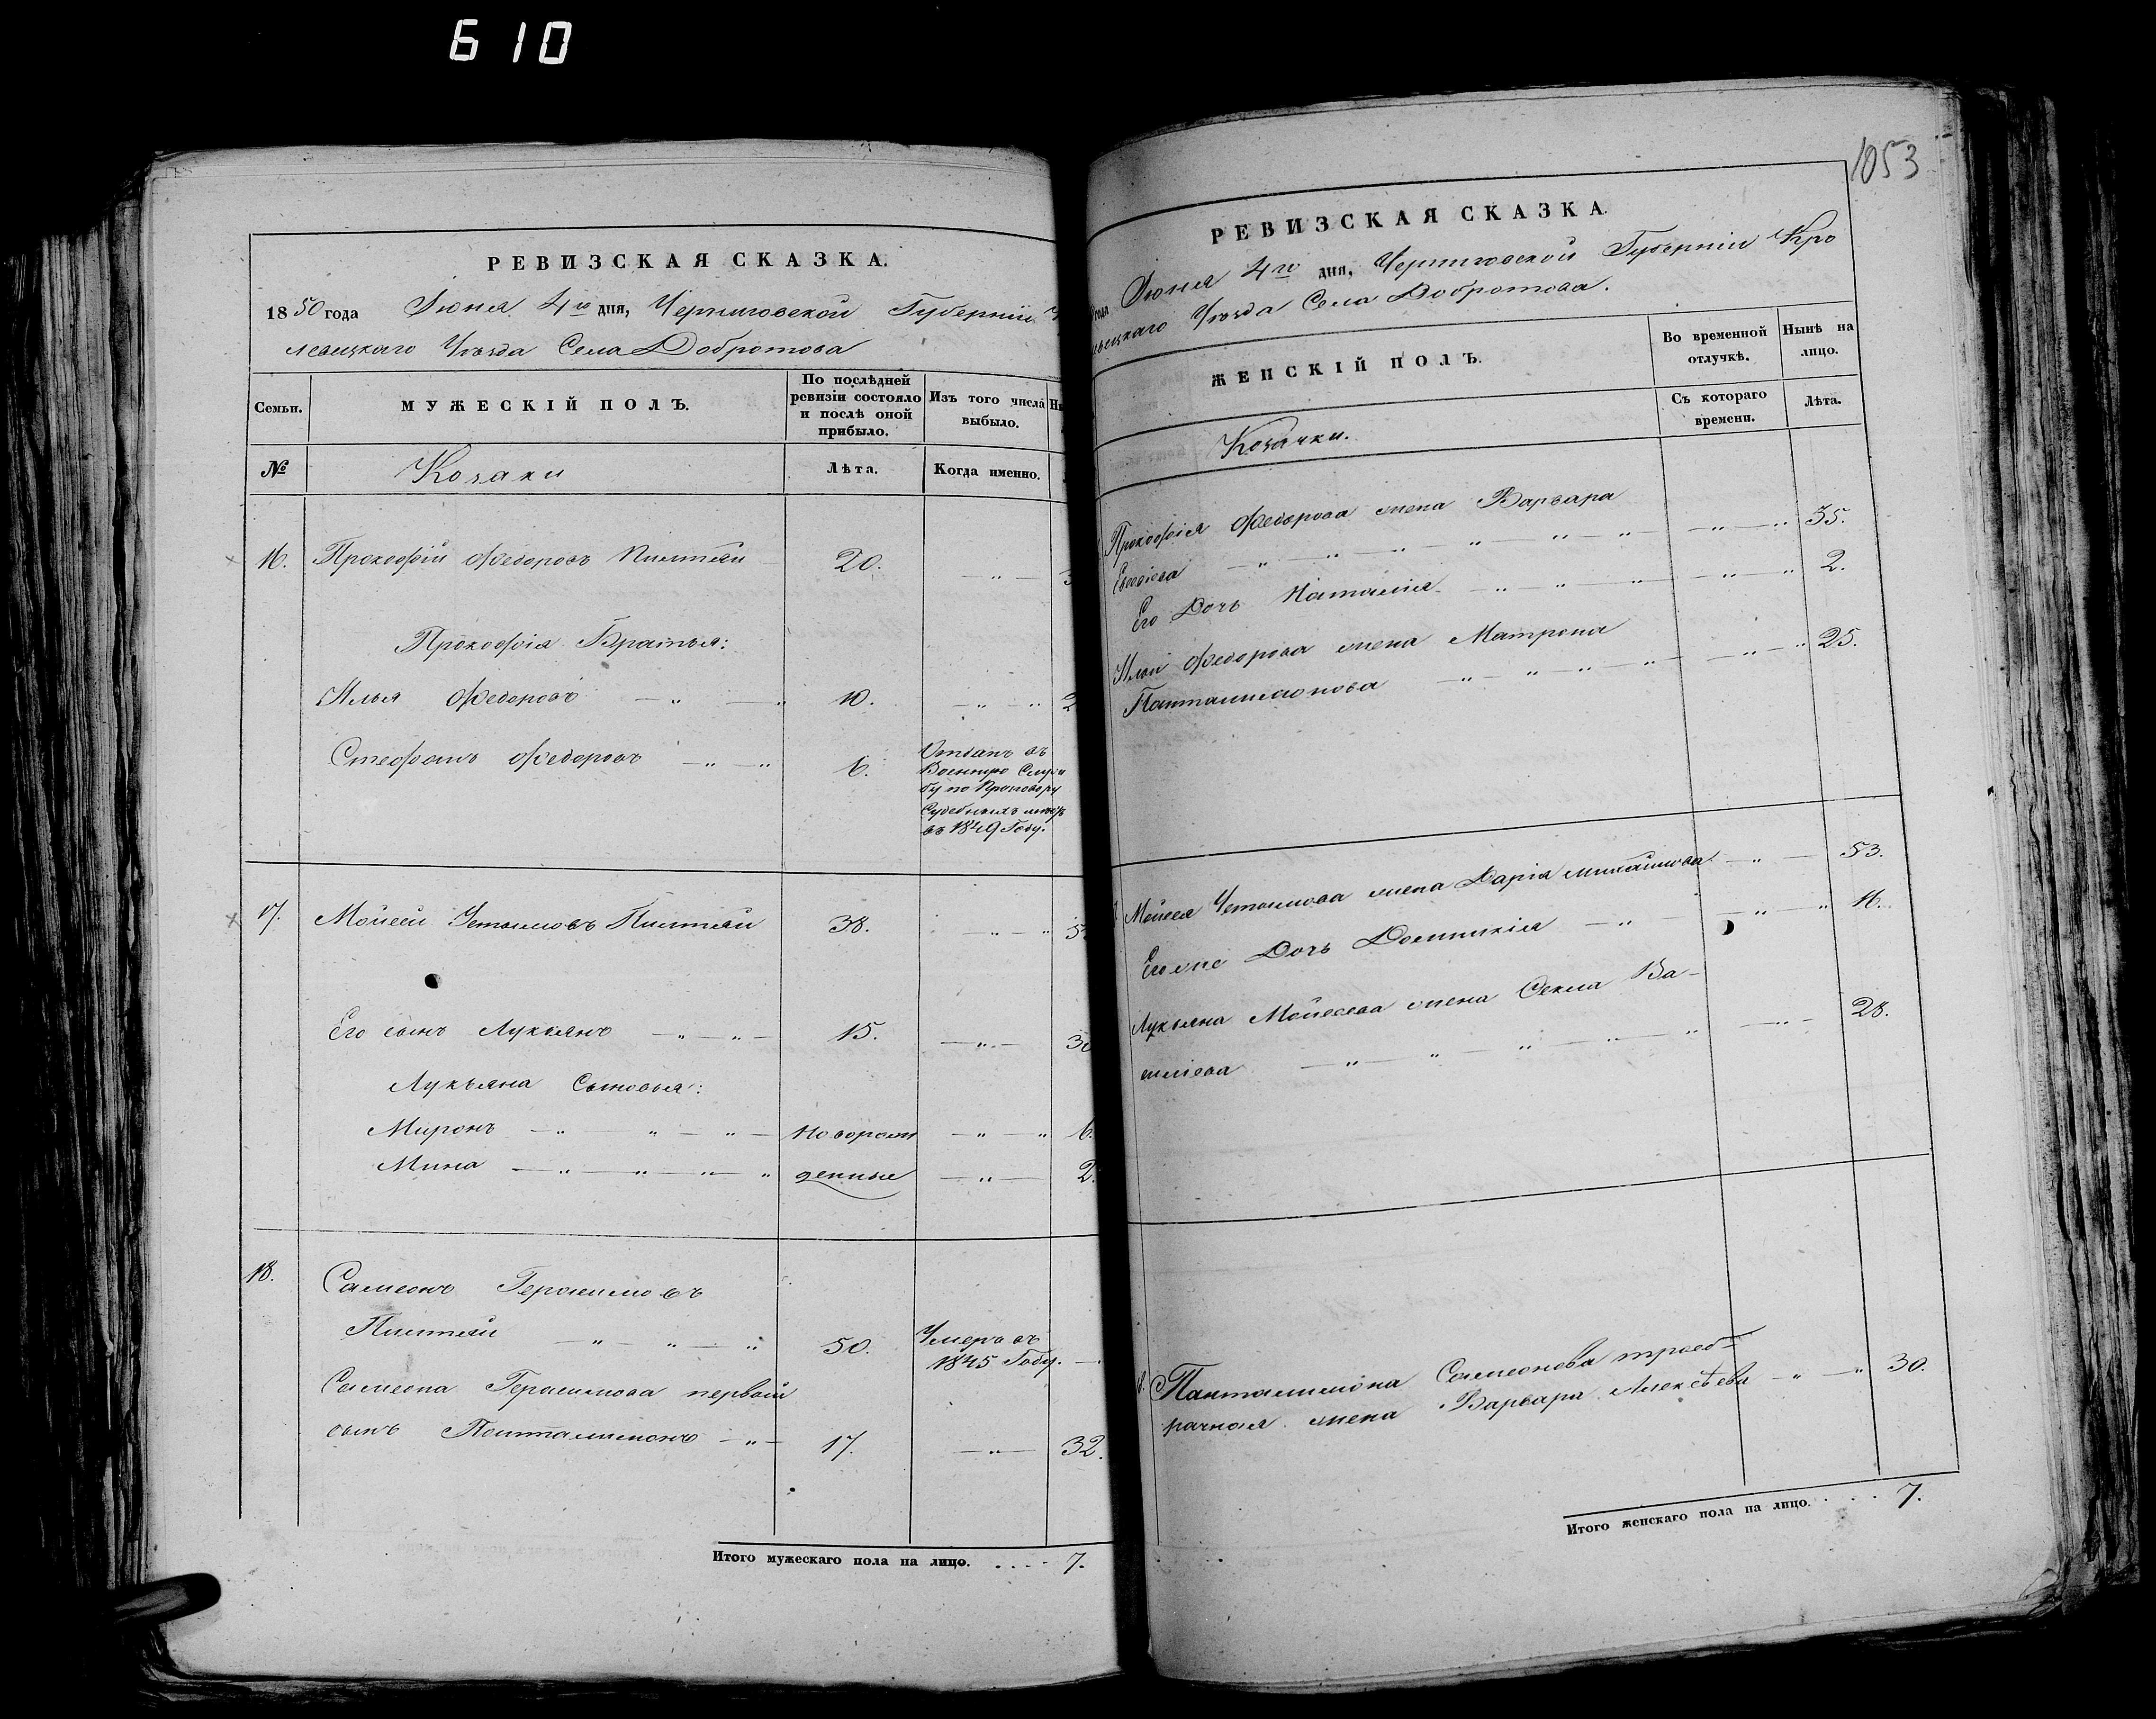 610
РЕВИЗСКАЯ СКАЗКА.
1850 года Іюня 4го дня, Черниговской Губерніи
левецкаго Уѣзда Села Добротова
Семьи.
МУЖЕСКІЙ ПОЛЪ.
По послѣдней
ревизіи состояло
и послѣ оной
прибыло.
Изъ того числа
выбыло.
№
Козаки
Лѣта.
Когда именно.
16. Прокофій Федоровъ 20.
Прокофія Братья:
Илья Федоровъ 10.
Стефанъ Федоровъ 6. Отданъ въ
Военную Служ
бу по Приговору
Судебныхъ мѣстъ
въ 1849 Году.
17. Мойсей Устимовъ 38.
Его сынъ Лукьянъ 15.
Лукьяна Сыновья:
Миронъ новорож 6.
Мина денные 2.
18. Самеонъ Герасимовъ
50. Умеръ въ
1845 Году.
Самеона Герасимова первый
сынъ Пантилимонъ 17. 32.
Итого мужескаго пола на лицо. .... 7.
1053
РЕВИЗСКАЯ СКАЗКА.
года Іюня 4го дня, Черниговской Губерніи Кро
левецкаго Уѣзда Села Добротова.
ЖЕНСКІЙ ПОЛЪ.
Во временной
отлучкѣ.
Нынѣ на
лицо.
Съ котораго
времени.
Лѣта.
Козачки.
Прокофія Федорова жена Варвара
35.
Его Дочь Наталія 2.
Ильи Федорова жена Матрона
Пантилимонова 25.
Мойсея Устимова жена Дарія 53.
Его же Дочь Домникія 16.
Лукьяна Мойсеева жена Фекла Ва-
силіева 28.
Пантилимона Самеонова троеб-
рачная жена Варвара Алексѣева 30.
Итого женскаго пола на лицо. .... 7.